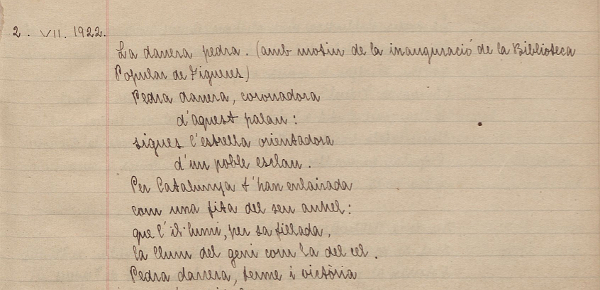 2. VII. 1922.
La darrera pedra. (amb motiu de la inauguració de la Biblioteca
Popular de Figueres)
Pedra darrera, coronadora
d'aquest palau:
sigues l'estrella orientadora
d'un poble esclau.
Per Catalunya t'han enlairada
com una fita del seu anhel:
que l'il·lumi, per sa fillada,
la llum del geni com la del cel.
Pedra darrera, terme i victòria